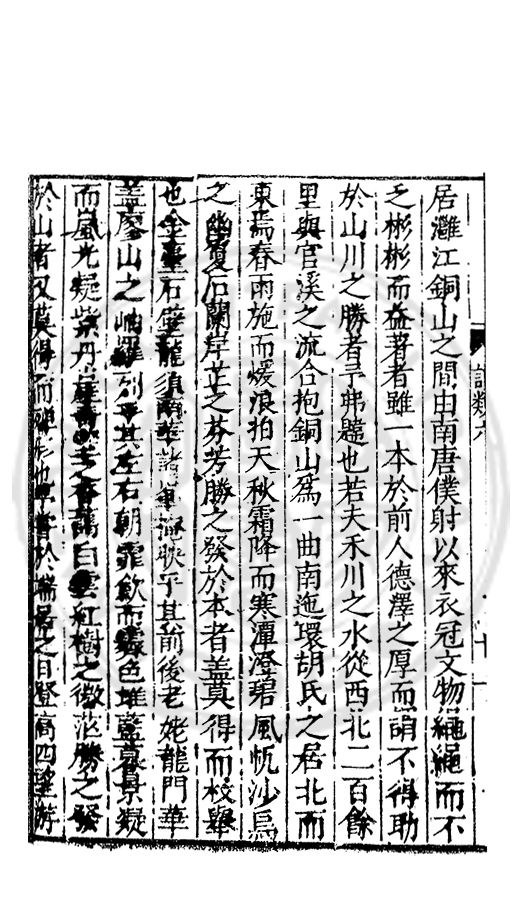 居灘江銅山之間由南唐僕射以來衣冠文物繩繩而不
乏彬彬而益著者雖一本於前人德澤之厚而謂不得助
於山川之勝者予弗題也若夫禾川之水從西北二百餘
里與官溪之流合抱銅山爲一曲南迤環胡氏之居北而
東焉春雨施而煖浪拍天秋霜降而寒潭澄碧風帆沙鳥
之幽夐石蘭岸芷之芬芳勝之發於本者蓋莫得而校舉
也金臺石壁龍須諸峯掩映乎其前後老姥龍門華
蓋廖山之岫羅列乎其左右朝霏飲而色堆藍暮景凝
而嵐光凝紫丹白雲紅樹之微茫勝之發
於山者又莫得而殫形也嘗於端居之日登高四望游
記類六
十一